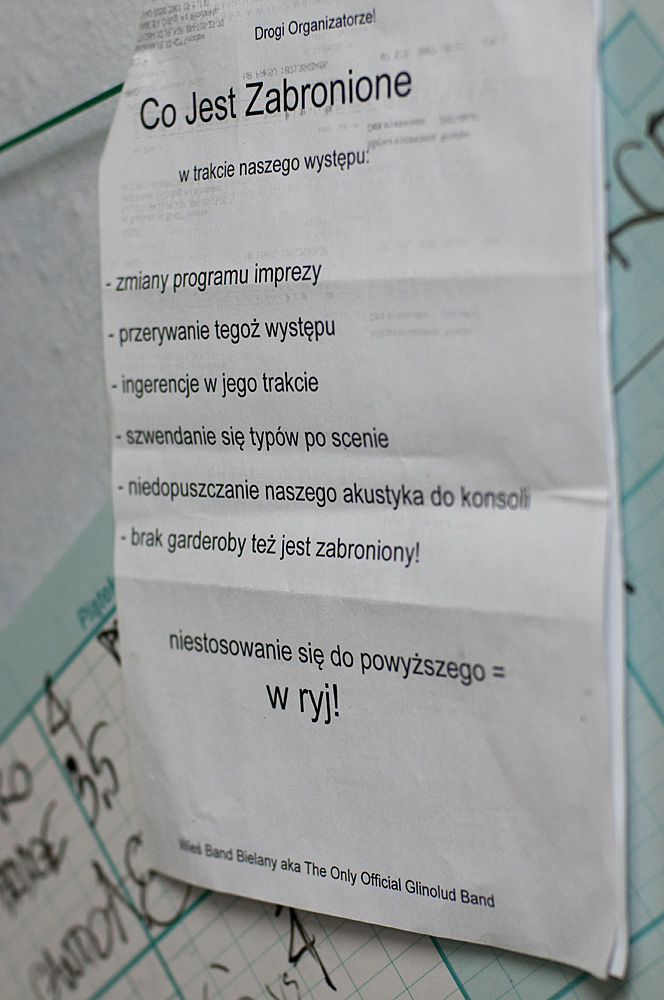 Drogi Organizatorze!
Co Jest Zabronione
w trakcie naszego występu:
- zmiany programu imprezy
- przerywanie tegoż występu
- ingerencje w jego trakcie
- szwendanie się typów po scenie
- niedopuszczanie naszego akustyka do konsoli
- brak garderoby też jest zabroniony!
niestosowanie się do powyższego =
w ryj!
Wieś Band Bielany aka The Only Official Glinolud Band
Piątek
4
3,5
4